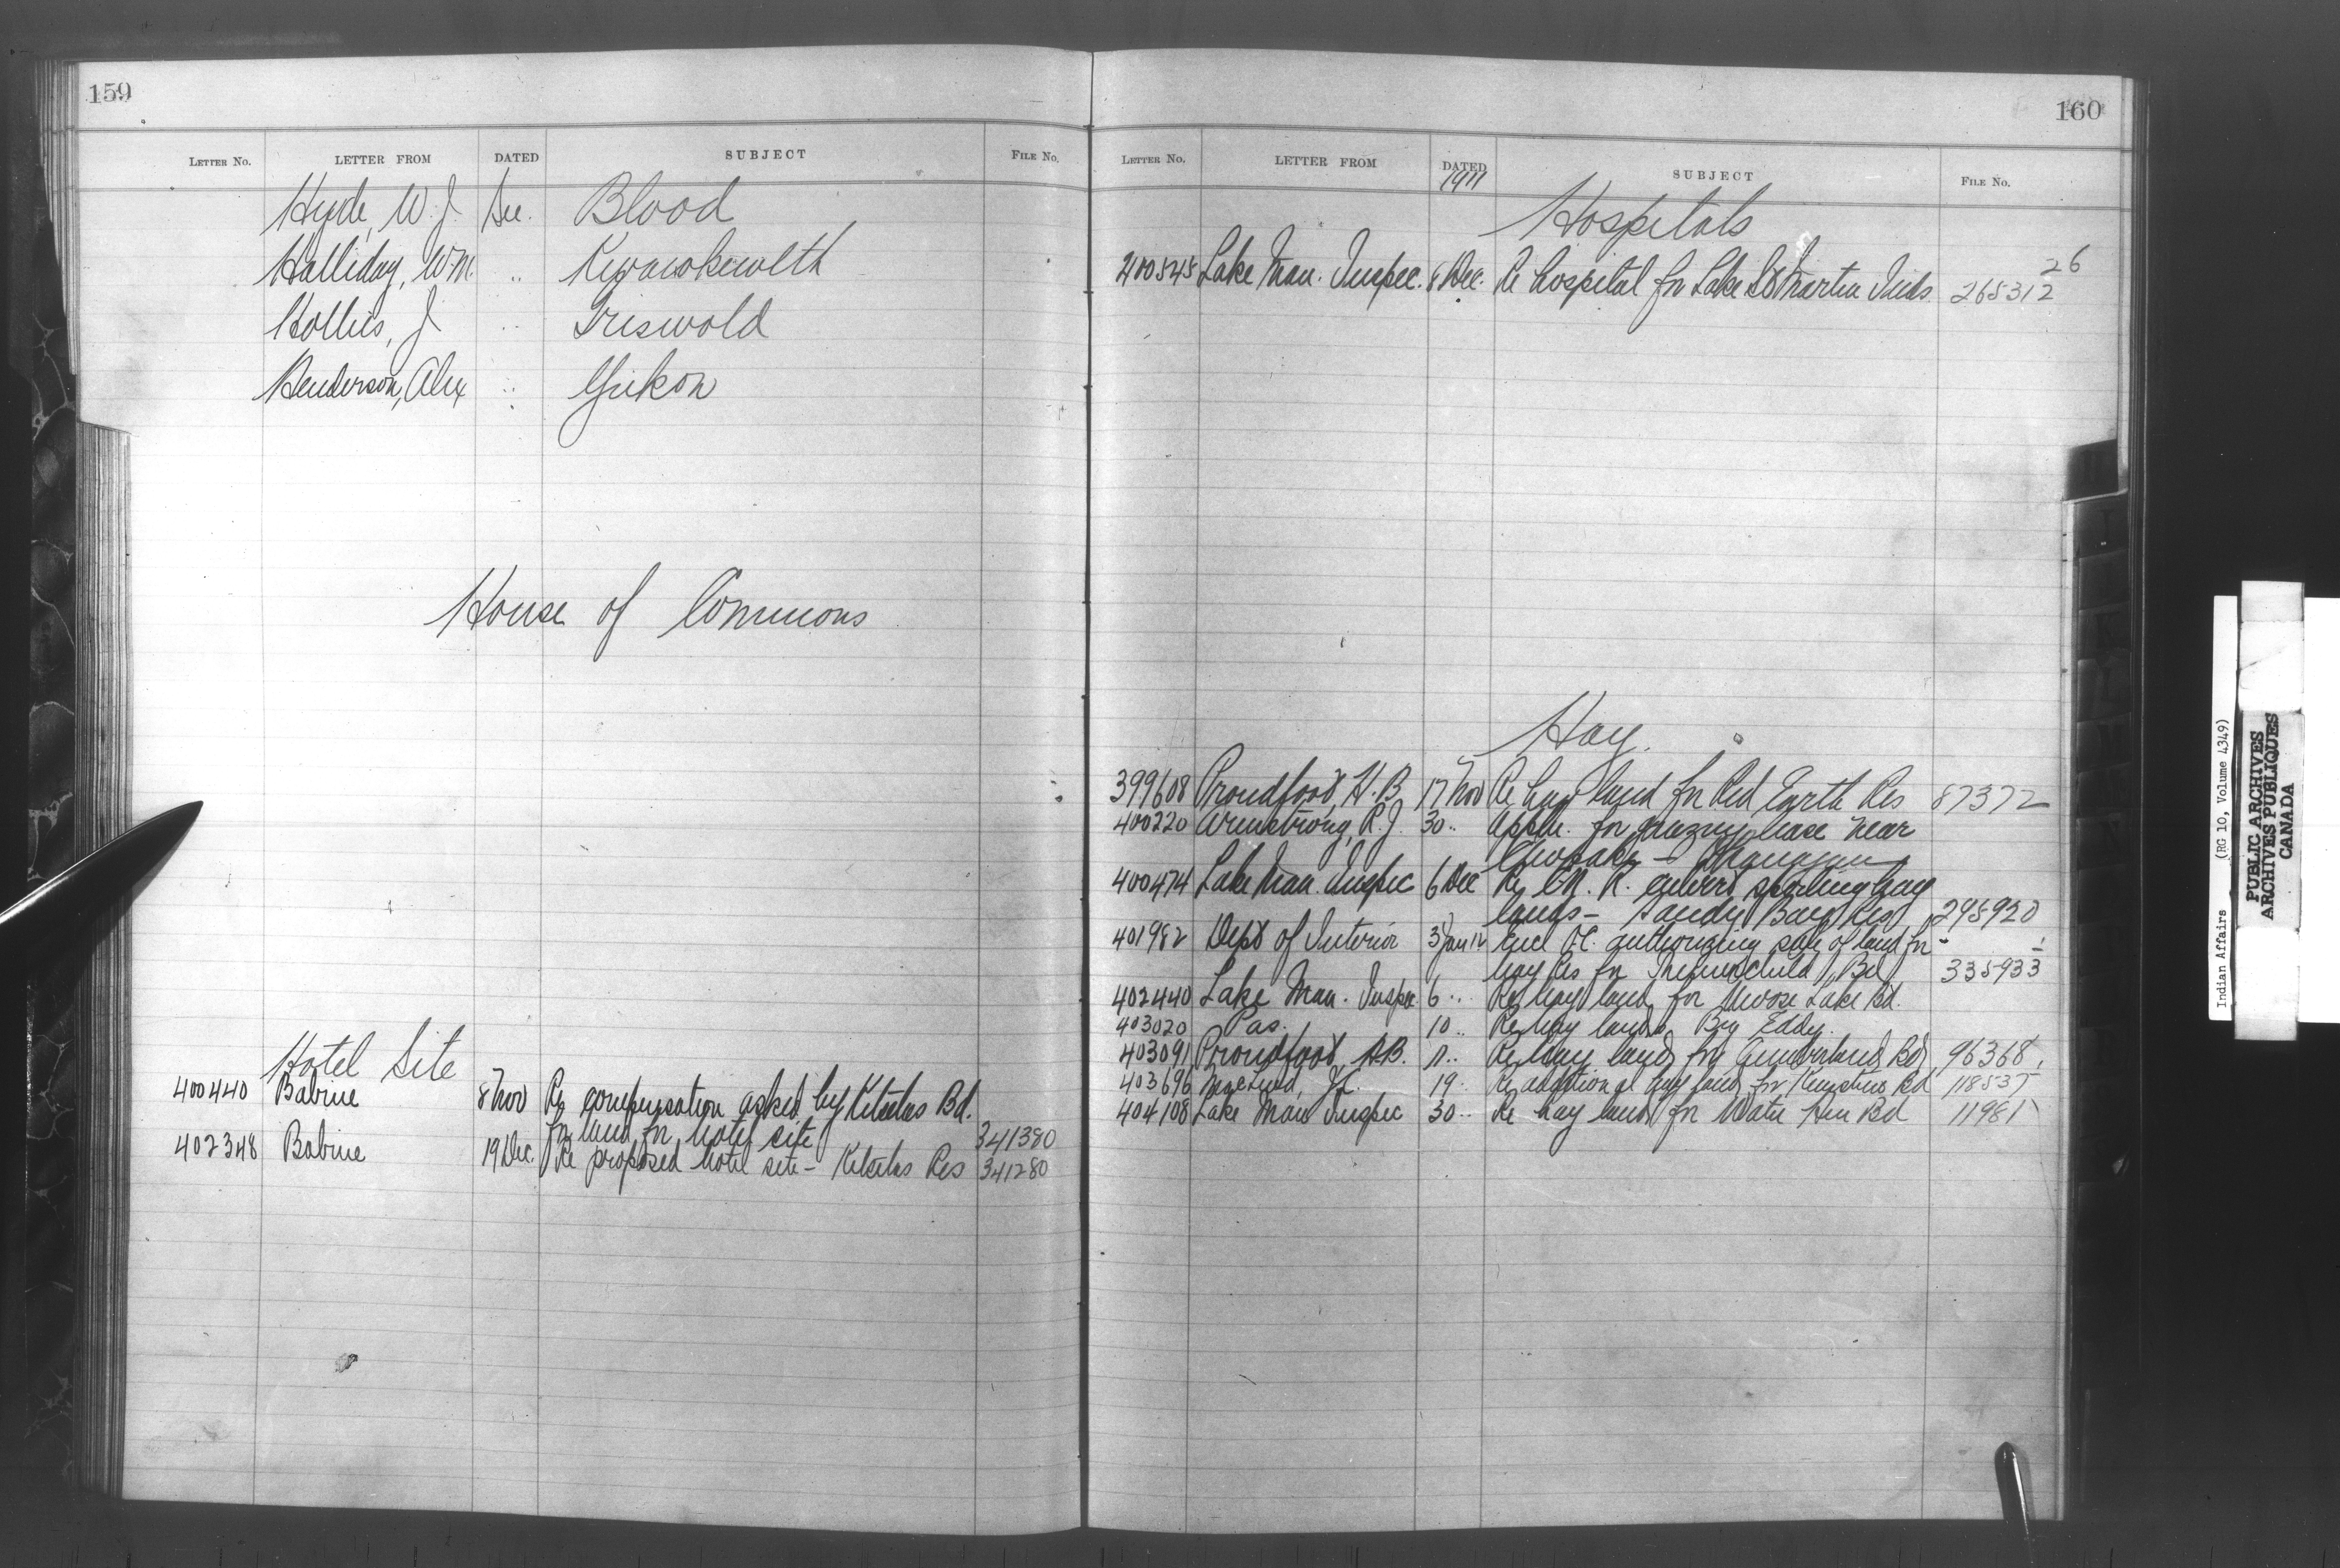 159
LETTER No. LETTER FROM DATED SUBJECT FILE No.
Hyde, W. J. Dec. Blood
Halliday, W.M. " Kwawkewlth
Hollies, J " Griswold
Henderson, Alex " Yukon
House of Commons
Hotel Site
400440 Babine 8 Nov Re compensation asked by Kitselas Bd.
for land for hotel site 341380
402348 Babine 19 Dec. Re proposed hotel site - Kitselas Res 341280
160
LETTER No. LETTER FROM DATED SUBJECT FILE No.
1911
Hospitals
400545 Lake Man. Inspec. 8 Dec. Re hospital for Lake St Martin Inds. 265312
26
Hay.
399608 Proudfoot, H. B. 17 Nov Re hay land for Red Earth Res 87372
400220 Armstrong, R. J. 30 " Appln. for grazing lease near
- Okanagan
400474 Lake Man. Inspec 6 Dec Re C.N.R. culvert spoiling hay
lands - Sandy Bay Res 245920
401982 Dept of Interior 3 Jan 12 Encl O.C. authorizing sale of land for
hay Res for Thunderchild Bd 335933
402440 Lake Man. Inspec 6 " Re hay land for Moose Lake Bd.
403020 Pas. 10 " Re hay lands Big Eddy.
403091 Proudfoot, H.B. 11 " Re hay land for Cumberland Bd 96368
403696 19 " Re additional hay land for Bd 118537
404108 Lake Man Inspec 30 " Re hay land for Water Hen Bd 11981
Indian Affairs (RG 10, Volume 4349)
PUBLIC ARCHIVES
ARCHIVES PUBLIQUES
CANADA